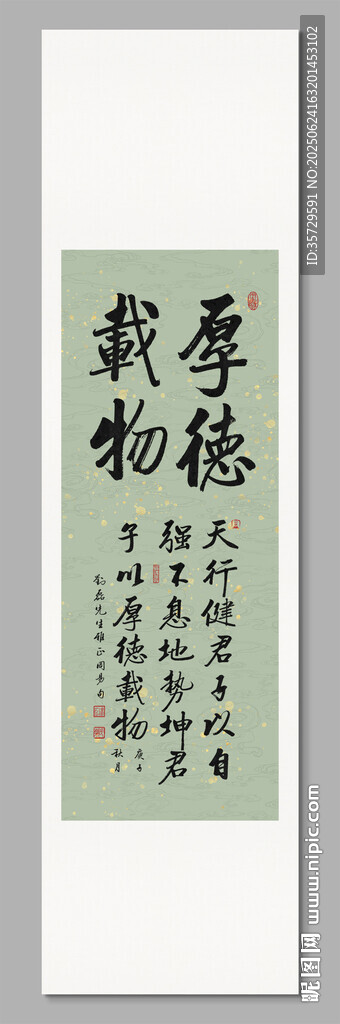 厚德
載物
天行健君子以自
强不息地势坤君
子以厚德載物
庚子
秋月
劉磊先生雅正周易句
ID:35729591 NO:20250624163201453102
昵图网 www.nipic.com